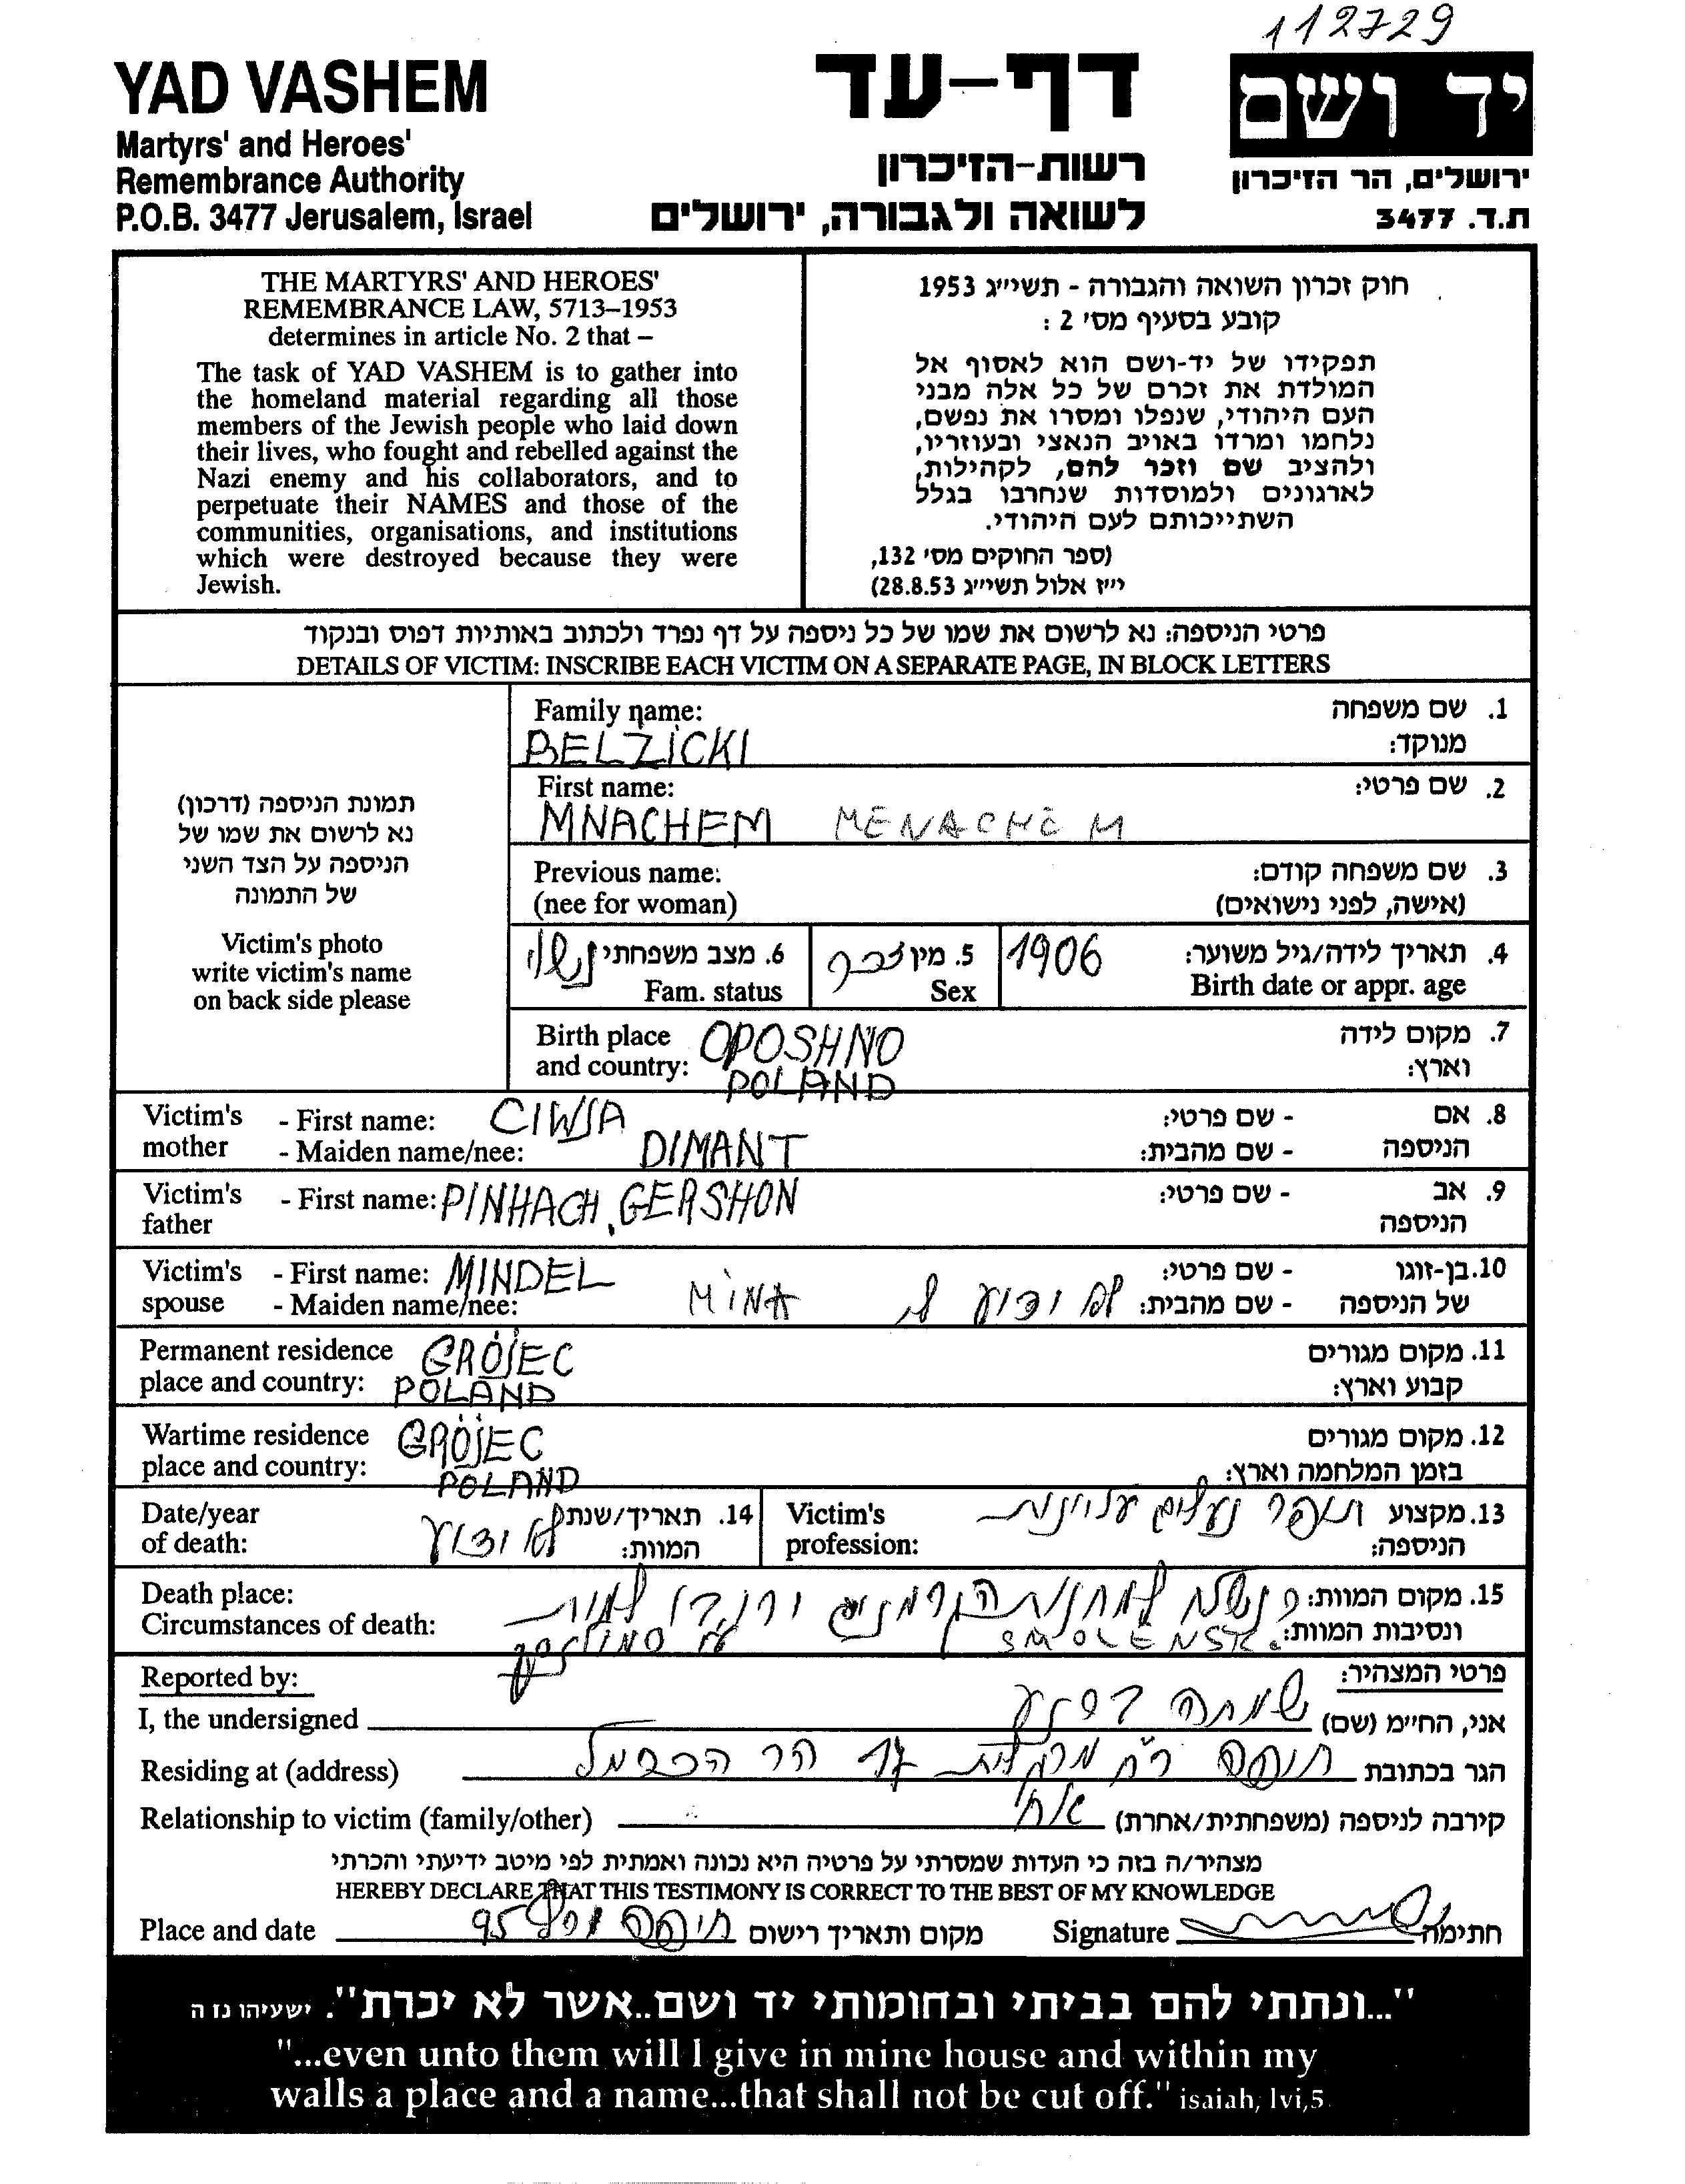 112729
YAD VASHEM
Martyrs' and Heroes'
Remembrance Authority
P.O.B. 3477 Jerusalem, Israel
דף-עד
רשות-הזיכרון
לשואה ולגבורה, ירושלים
יד ושם
ירושלים, הר הזיכרון
ת.ד. 3477
THE MARTYRS' AND HEROES'
REMEMBRANCE LAW, 5713–1953
determines in article No. 2 that –
The task of YAD VASHEM is to gather into
the homeland material regarding all those
members of the Jewish people who laid down
their lives, who fought and rebelled against the
Nazi enemy and his collaborators, and to
perpetuate their NAMES and those of the
communities, organisations, and institutions
which were destroyed because they were
Jewish.
חוק זכרון השואה והגבורה - תשי״ג 1953
קובע בסעיף מס׳ 2 :
תפקידו של יד-ושם הוא לאסוף אל
המולדת את זכרם של כל אלה מבני
העם היהודי, שנפלו ומסרו את נפשם,
נלחמו ומרדו באויב הנאצי ובעוזריו,
ולהציב שם וזכר להם, לקהילות,
לארגונים ולמוסדות שנחרבו בגלל
השתייכותם לעם היהודי.
(ספר החוקים מס׳ 132,
י״ז אלול תשי״ג 28.8.53)
פרטי הניספה: נא לרשום את שמו של כל ניספה על דף נפרד ולכתוב באותיות דפוס ובנקוד
DETAILS OF VICTIM: INSCRIBE EACH VICTIM ON A SEPARATE PAGE, IN BLOCK LETTERS
תמונת הניספה (דרכון)
נא לרשום את שמו של
הניספה על הצד השני
של התמונה
Victim's photo
write victim's name
on back side please
Family name: 1. שם משפחה
BELZICKI מנוקד:
First name: 2. שם פרטי:
MNACHEM MENACHEM
Previous name: 3. שם משפחה קודם:
(nee for woman) (אישה, לפני נישואים)
4. תאריך לידה/גיל משוער: 1906
Birth date or appr. age
5. מין זכר
Sex
6. מצב משפחתי נשוי
Fam. status
Birth place OPOSHNO 7. מקום לידה
and country: POLAND וארץ:
Victim's - First name: CIWJA - שם פרטי: 8. אם
mother - Maiden name/nee: DIMANT - שם מהבית: הניספה
Victim's - First name: PINHACH, GERSHON - שם פרטי: 9. אב
father הניספה
Victim's - First name: MINDEL MINA - שם פרטי: 10. בן-זוגו
spouse - Maiden name/nee: - שם מהבית: לא ידוע לי של הניספה
Permanent residence GRÓJEC 11. מקום מגורים
place and country: POLAND קבוע וארץ:
Wartime residence GRÓJEC 12. מקום מגורים
place and country: POLAND בזמן המלחמה וארץ:
Victim's 13. מקצוע תופר נעלים עליונות
profession: הניספה:
Date/year 14. תאריך/שנת
of death: המוות: לא ידוע
Death place: 15. מקום המוות: נשלח למחנות הגרמנים
Circumstances of death: ונסיבות המוות: SMOLENSK
Reported by: פרטי המצהיר:
I, the undersigned אני, החי״מ (שם) שמחה
Residing at (address) הגר בכתובת חיפה הר הכרמל
Relationship to victim (family/other) קירבה לניספה (משפחתית/אחרת) אחי
מצהיר/ה בזה כי העדות שמסרתי על פרטיה היא נכונה ואמתית לפי מיטב ידיעתי והכרתי
HEREBY DECLARE THAT THIS TESTIMONY IS CORRECT TO THE BEST OF MY KNOWLEDGE
Place and date מקום ותאריך רישום חיפה 95 Signature חתימה
"...ונתתי להם בביתי ובחומותי יד ושם..אשר לא יכרת". ישעיהו נו ה
"...even unto them will I give in mine house and within my
walls a place and a name...that shall not be cut off." isaiah, lvi,5